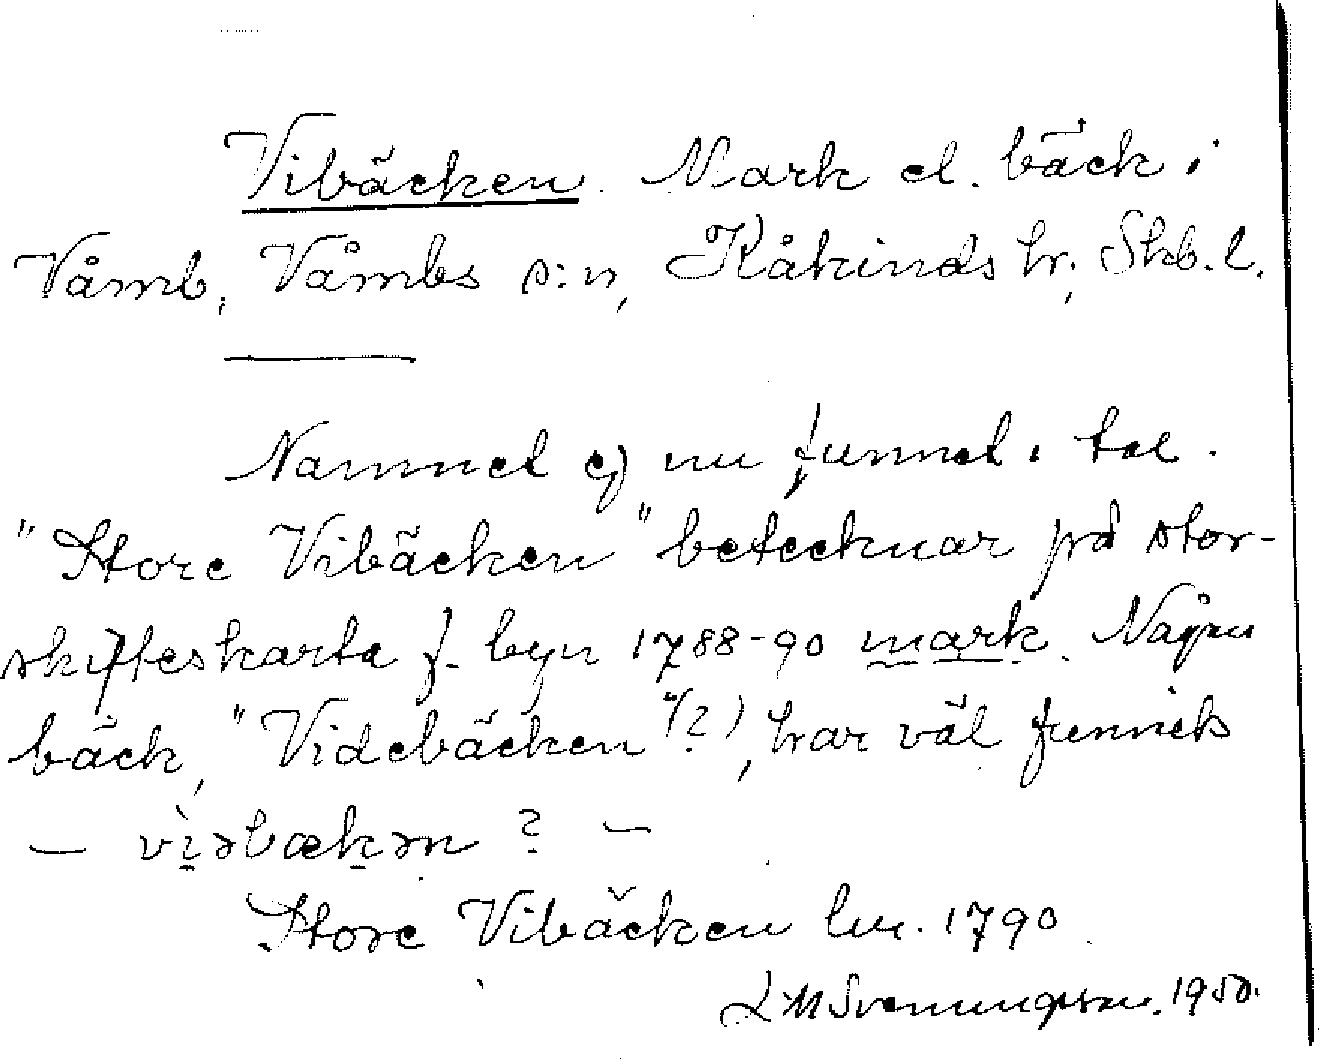 Vibäcken. Mark el. bäck i
Våmb, Våmbs s:n, Kåkinds hr, Skb. l.
Namnet ej nu funnet i tal.
"Store Vibäcken" betecknar på stor-
skifteskarta f. byn 1788-90 mark. Någon
bäck, "Videbäcken"(?), har väl funnits
— vìəbækən ? —
Store Vibäcken lm. 1790
L M Svenungsson. 1950.